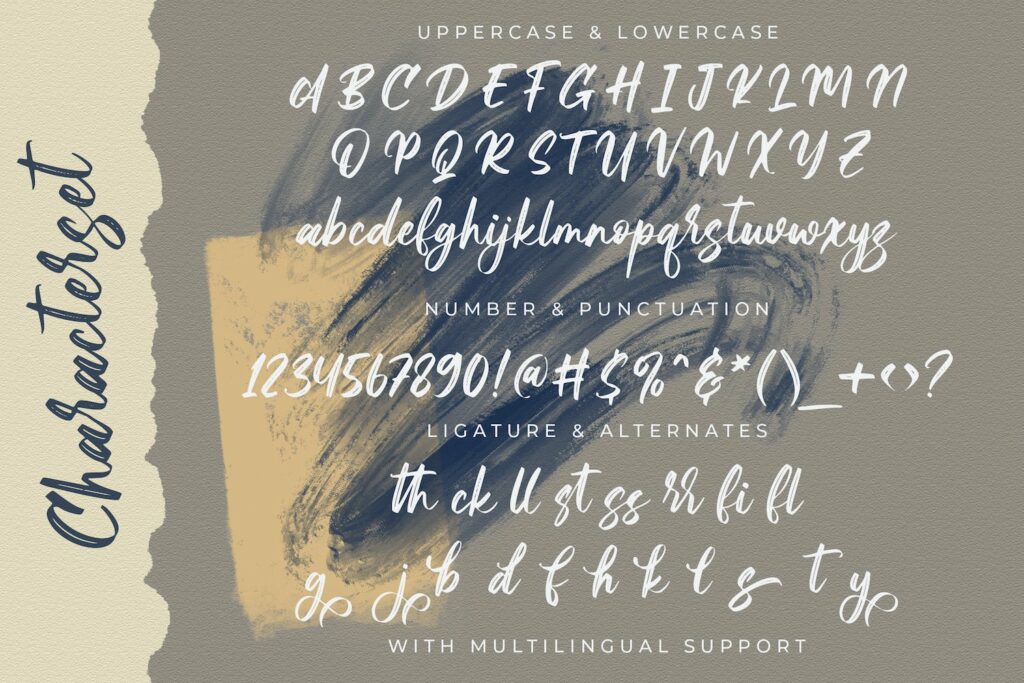 Characterset
UPPERCASE & LOWERCASE
A B C D E F G H I J K L M N
O P Q R S T U V W X Y Z
abcdefghijklmnopqrstuvwxyz
NUMBER & PUNCTUATION
1234567890!@#$%^&*()_+<>?
LIGATURE & ALTERNATES
th ck ll st ss rr fi fl
g j b d f h k l s t y
WITH MULTILINGUAL SUPPORT